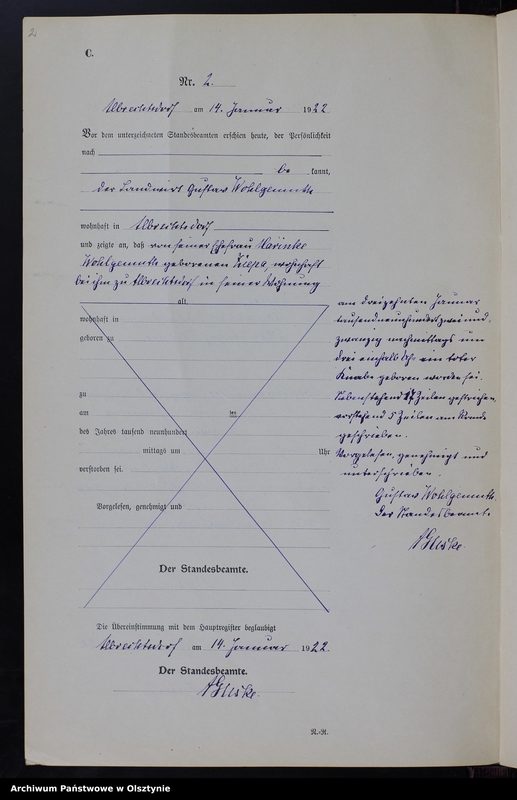 2
C.
Nr. 2.
Albrechtsdorf am 14. Januar 1922
Vor dem unterzeichneten Standesbeamten erschien heute, der Persönlichkeit
nach
be kannt,
der Landwirt Gustav Wohlgemuth
wohnhaft in Albrechtsdorf
und zeigte an, daß von seiner Ehefrau
Wohlgemuth geborenen wohnhaft
bei ihm zu Albrechtsdorf in seiner Wohnung
alt
wohnhaft in
geboren zu
zu
am ten
des Jahres tausend neunhundert
mittags um Uhr
verstorben sei.
Vorgelesen, genehmigt und
Der Standesbeamte.
am dreizehnten Januar
tausendneunhundertzweiund-
zwanzig nachmittags um
drei einhalb Uhr ein toter
Knabe geboren worden sei.
Nebenstehend Zeilen gestrichen,
vorstehend 5 Zeilen am Rande
geschrieben.
Vorgelesen, genehmigt und
unterschrieben.
Gustav Wohlgemuth
Der Standesbeamte.
Die Übereinstimmung mit dem Hauptregister beglaubigt
Albrechtsdorf am 14. Januar 1922.
Der Standesbeamte.
R.-R.
Archiwum Państwowe w Olsztynie